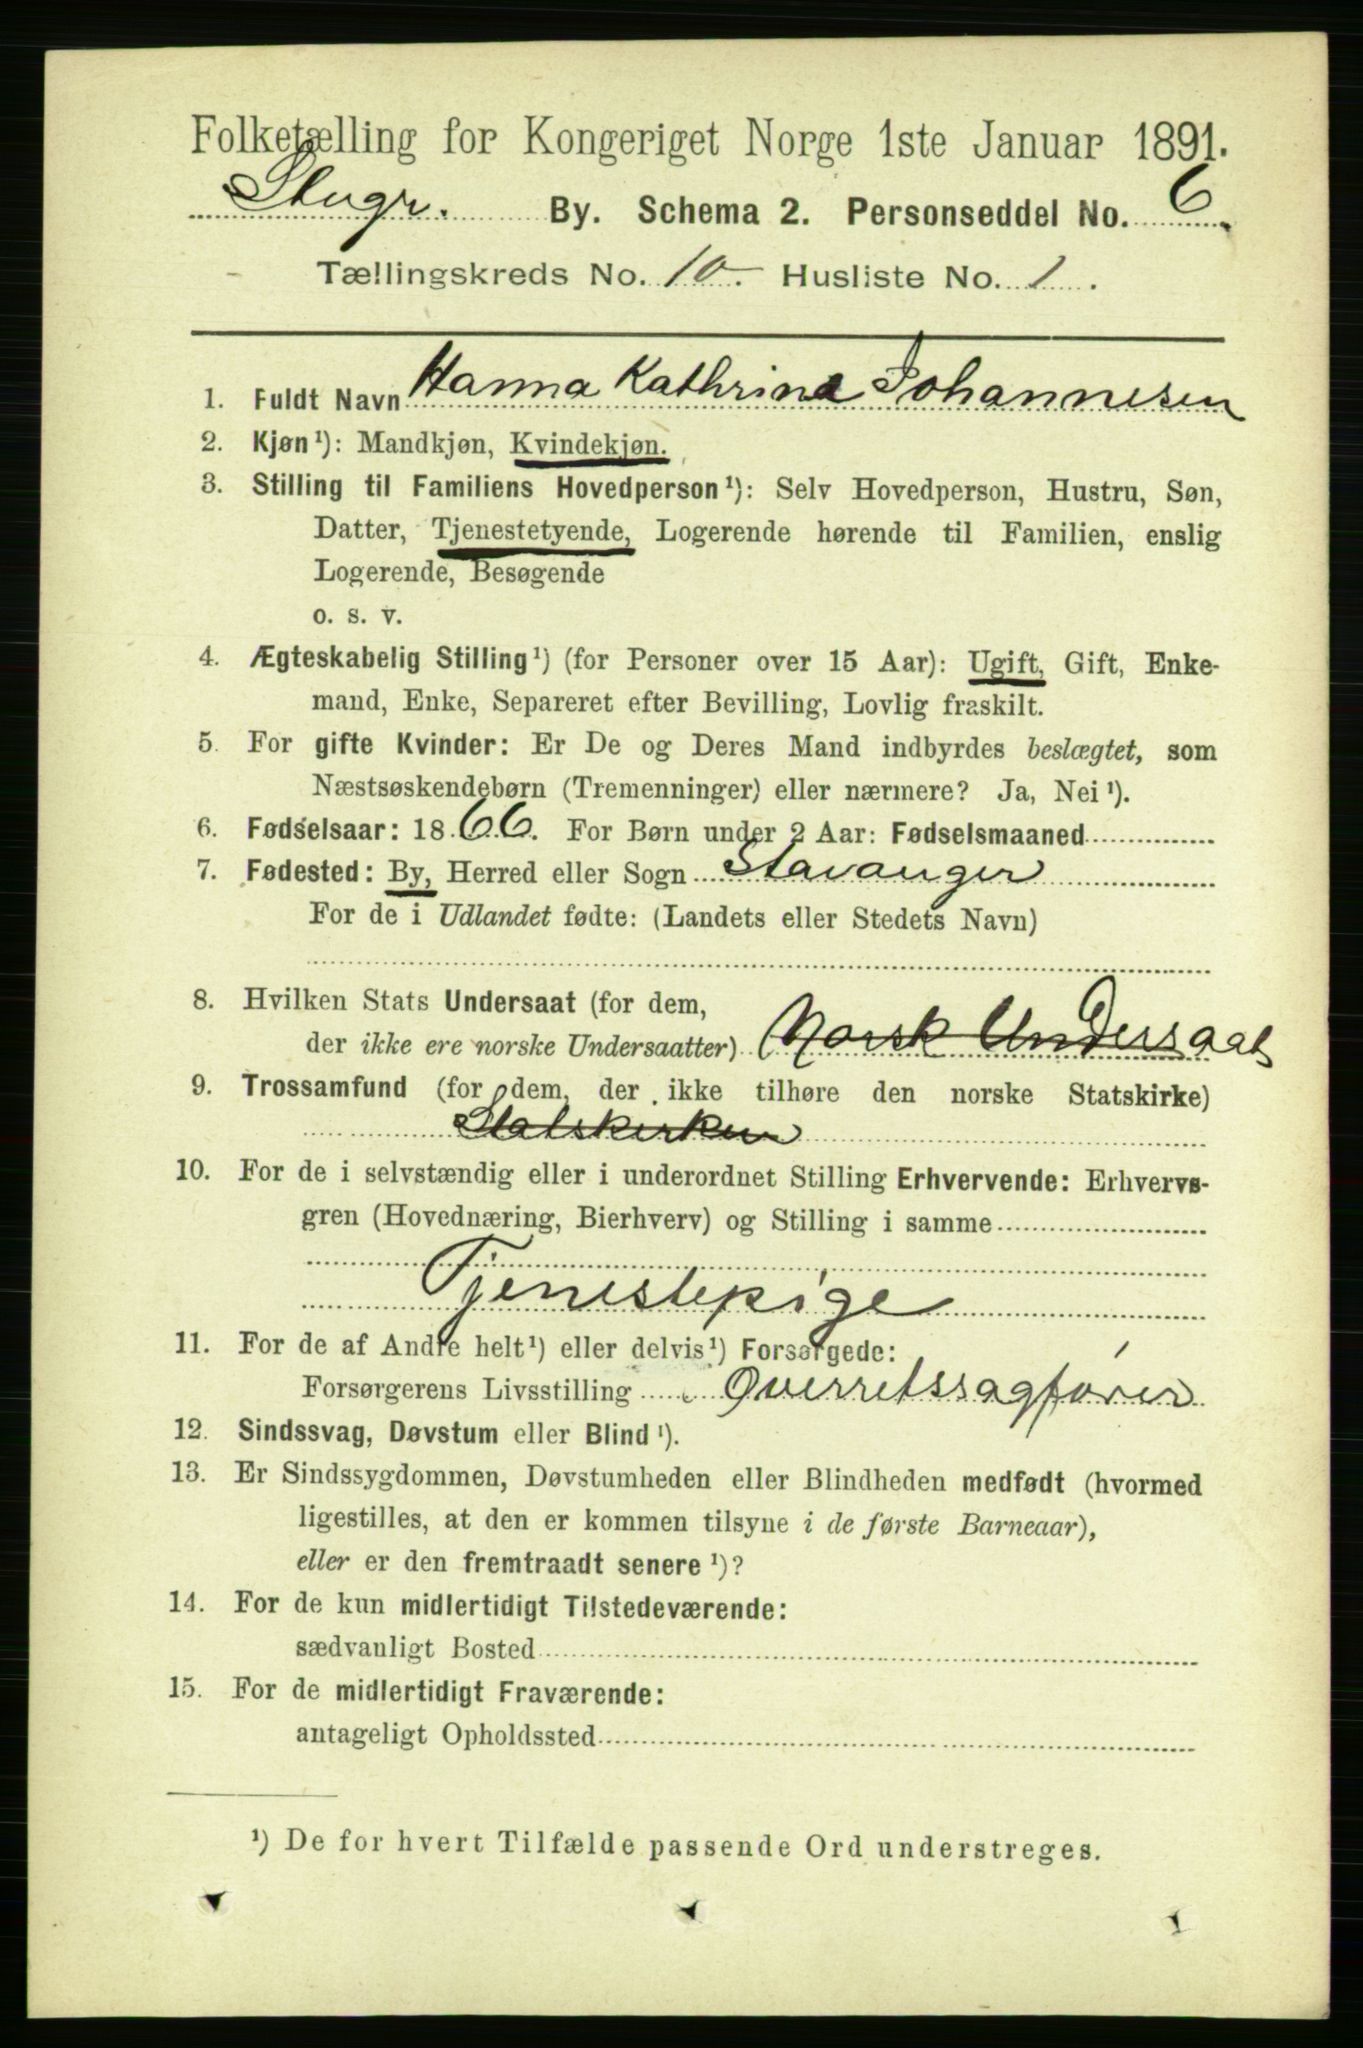 Folketælling for Kongeriget Norge 1ste Januar 1891.
Stvgr. By. Schema 2. Personseddel No. 6.
Tællingskreds No. 10. Husliste No. 1.
1. Fuldt Navn Hanna Kathrine Johannesen
2. Kjøn¹): Mandkjøn, Kvindekjøn.
3. Stilling til Familiens Hovedperson¹): Selv Hovedperson, Hustru, Søn,
Datter, Tjenestetyende, Logerende hørende til Familien, enslig
Logerende, Besøgende
o. s. v.
4. Ægteskabelig Stilling¹) (for Personer over 15 Aar): Ugift, Gift, Enke-
mand, Enke, Separeret efter Bevilling, Lovlig fraskilt.
5. For gifte Kvinder: Er De og Deres Mand indbyrdes beslægtet, som
Næstsøskendebørn (Tremenninger) eller nærmere? Ja, Nei¹).
6. Fødselsaar: 1866. For Børn under 2 Aar: Fødselsmaaned
7. Fødested: By, Herred eller Sogn Stavanger
For de i Udlandet fødte: (Landets eller Stedets Navn)
8. Hvilken Stats Undersaat (for dem,
der ikke ere norske Undersaatter) Norsk Undersaat
9. Trossamfund (for dem, der ikke tilhøre den norske Statskirke)
Statskirken
10. For de i selvstændig eller i underordnet Stilling Erhvervende: Erhvervs-
gren (Hovednæring, Bierhverv) og Stilling i samme
Tjenestepige
11. For de af Andre helt¹) eller delvis¹) Forsørgede:
Forsørgerens Livsstilling Overretssagfører
12. Sindssvag, Døvstum eller Blind¹).
13. Er Sindssygdommen, Døvstumheden eller Blindheden medfødt (hvormed
ligestilles, at den er kommen tilsyne i de første Barneaar),
eller er den fremtraadt senere¹)?
14. For de kun midlertidigt Tilstedeværende:
sædvanligt Bosted
15. For de midlertidigt Fraværende:
antageligt Opholdssted
¹) De for hvert Tilfælde passende Ord understreges.